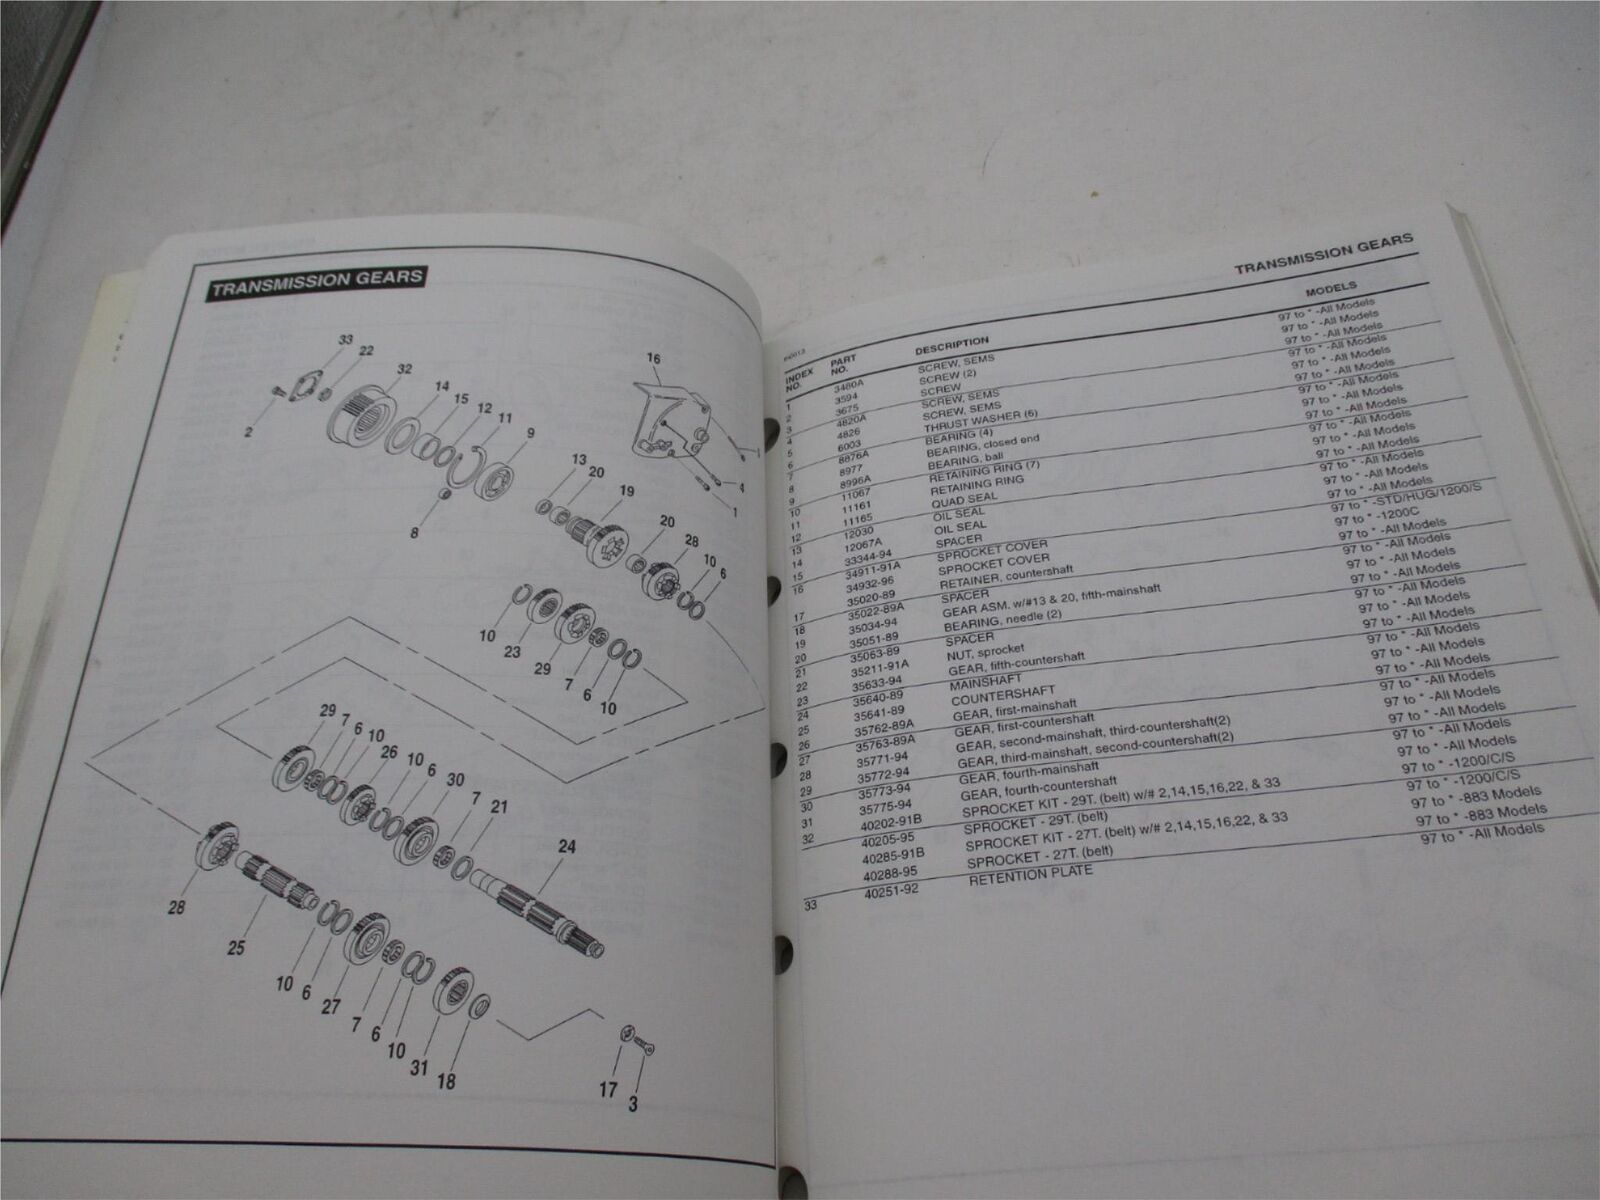 TRANSMISSION GEARS
33
22
32
16
14
15
12
11
9
2
13
20
19
4
1
8
20
28
10
6
10
23
29
7
6
10
29
7
6
10
26
10
6
30
7
21
24
28
25
10
6
27
7
6
10
31
18
17
3
TRANSMISSION GEARS
INDEX NO. PART NO. DESCRIPTION MODELS
1 3480A SCREW, SEMS 97 to * -All Models
2 3594 SCREW (2) 97 to * -All Models
3 3675 SCREW 97 to * -All Models
4 4820A SCREW, SEMS 97 to * -All Models
5 4826 SCREW, SEMS 97 to * -All Models
6 6003 THRUST WASHER (6) 97 to * -All Models
7 8876A BEARING (4) 97 to * -All Models
8 8977 BEARING, closed end 97 to * -All Models
9 8996A BEARING, ball 97 to * -All Models
10 11067 RETAINING RING (7) 97 to * -All Models
11 11161 RETAINING RING 97 to * -All Models
12 11165 QUAD SEAL 97 to * -All Models
13 12030 OIL SEAL 97 to * -All Models
14 12067A OIL SEAL 97 to * -All Models
15 33344-94 SPACER 97 to * -All Models
16 34911-91A SPROCKET COVER 97 to * -STD/HUG/1200/S
34932-96 SPROCKET COVER 97 to * -1200C
17 35020-89 RETAINER, countershaft 97 to * -All Models
18 35022-89A SPACER 97 to * -All Models
19 35034-94 GEAR ASM. w/#13 & 20, fifth-mainshaft 97 to * -All Models
20 35051-89 BEARING, needle (2) 97 to * -All Models
21 35063-89 SPACER 97 to * -All Models
22 35211-91A NUT, sprocket 97 to * -All Models
23 35633-94 GEAR, fifth-countershaft 97 to * -All Models
24 35640-89 MAINSHAFT 97 to * -All Models
25 35641-89 COUNTERSHAFT 97 to * -All Models
26 35762-89A GEAR, first-mainshaft 97 to * -All Models
27 35763-89A GEAR, first-countershaft 97 to * -All Models
28 35771-94 GEAR, second-mainshaft, third-countershaft(2) 97 to * -All Models
29 35772-94 GEAR, third-mainshaft, second-countershaft(2) 97 to * -All Models
30 35773-94 GEAR, fourth-mainshaft 97 to * -All Models
31 35775-94 GEAR, fourth-countershaft 97 to * -All Models
32 40202-91B SPROCKET KIT - 29T. (belt) w/# 2,14,15,16,22, & 33 97 to * -1200/C/S
40205-95 SPROCKET - 29T. (belt) 97 to * -1200/C/S
40285-91B SPROCKET KIT - 27T. (belt) w/# 2,14,15,16,22, & 33 97 to * -883 Models
40288-95 SPROCKET - 27T. (belt) 97 to * -883 Models
33 40251-92 RETENTION PLATE 97 to * -All Models